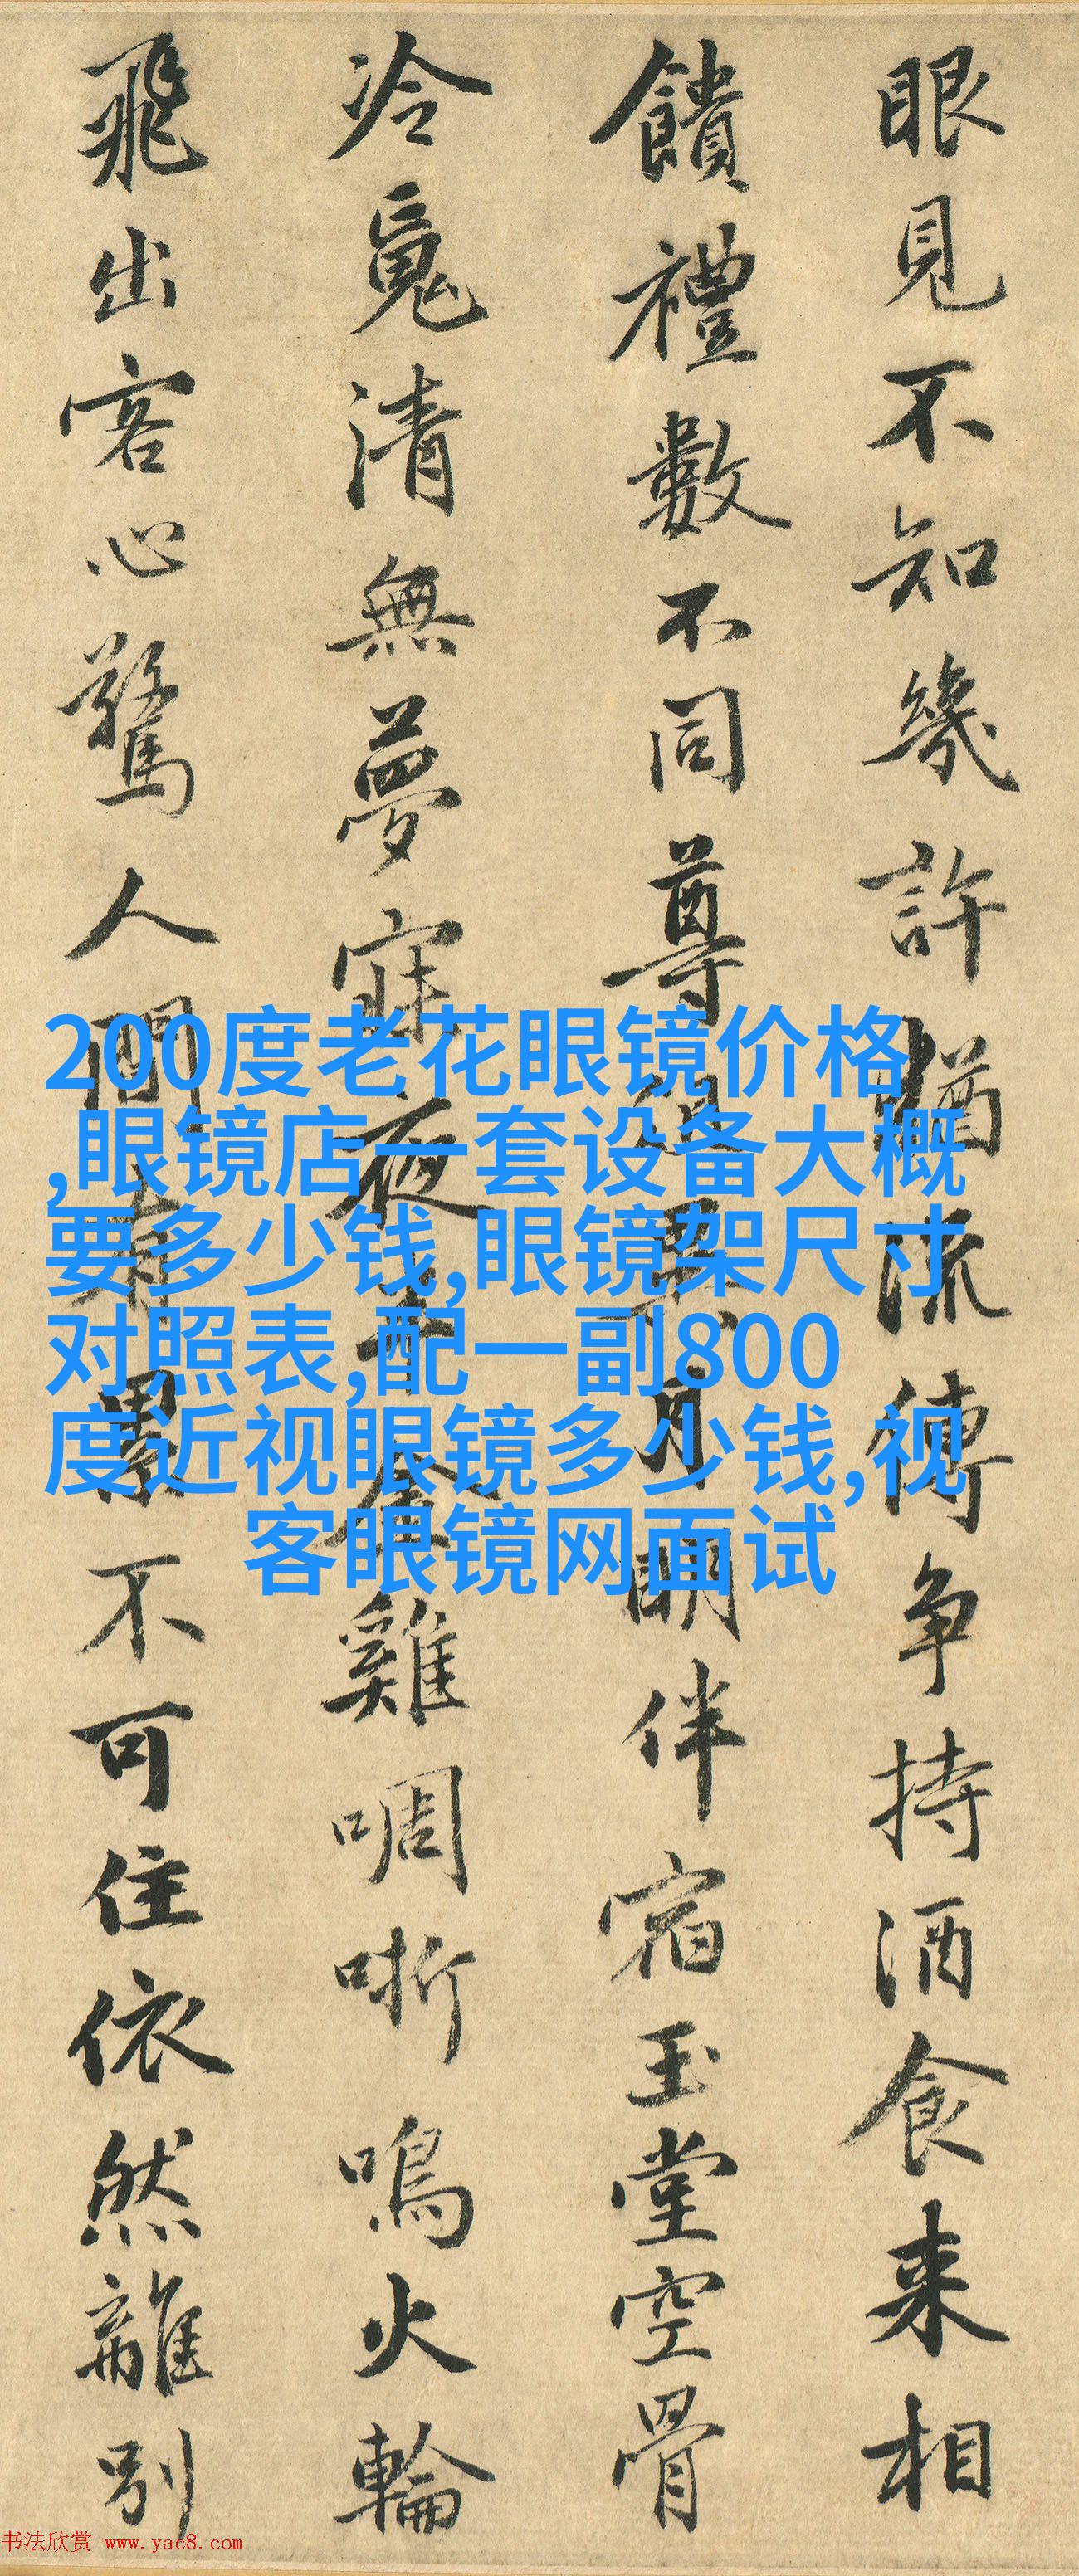 眼見不知幾許猶流傳争持酒食来相
饋禮數不同尊
月明伴宿玉堂空骨
冷魂清無夢寐夜
金雞啁哳鳴火輪
飛出客心驚人間
累不可住依然離别
200度老花眼镜价格
,眼镜店一套设备大概
要多少钱,眼镜架尺寸
对照表,配一副800
度近视眼镜多少钱,视
客眼镜网面试
书法欣赏 www.yac8.com